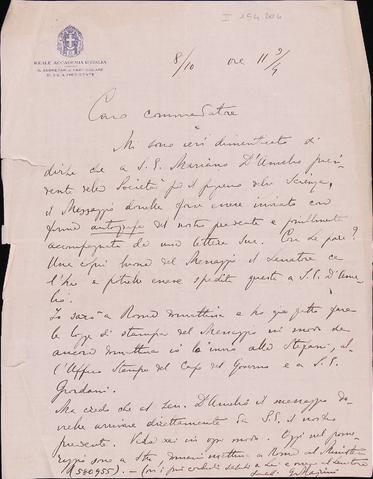 II 154.204
REALE ACCADEMIA D'ITALIA
IL SEGRETARIO PARTICOLARE
DI S. E. IL PRESIDENTE
8/10 ore 11
Caro commendatore
Mi sono ieri dimenticato di
dirle che a S. E. Mariano D'Amelio presi-
dente della Società per il progresso delle Scienze,
il Messaggio dovrebbe forse essere inviato con
firma autografa del nostro presidente e possibilmente
accompagnato da una lettera Sua. Che le pare?
Una copia buona del Messaggio il Senatore ce
l'ha e potrebbe essere spedita questa a S. E. D'Ame-
lio.
Io sarò a Roma domattina e ho già fatto fare
le copie di stampa del Messaggio in modo che
ancora domattina io lo invio alla Stefani, al-
l'Ufficio Stampa del Capo del Governo e a S. E.
Giordani.
Ma credo che al Sen. D'Amelio il messaggio do-
vrebbe arrivare direttamente da S. E. il nostro
presidente. Veda lei in ogni modo. Oggi nel pome-
riggio sono a domani mattina a Roma al Ministero
(580955). — cordiali saluti a Lei e al Senatore